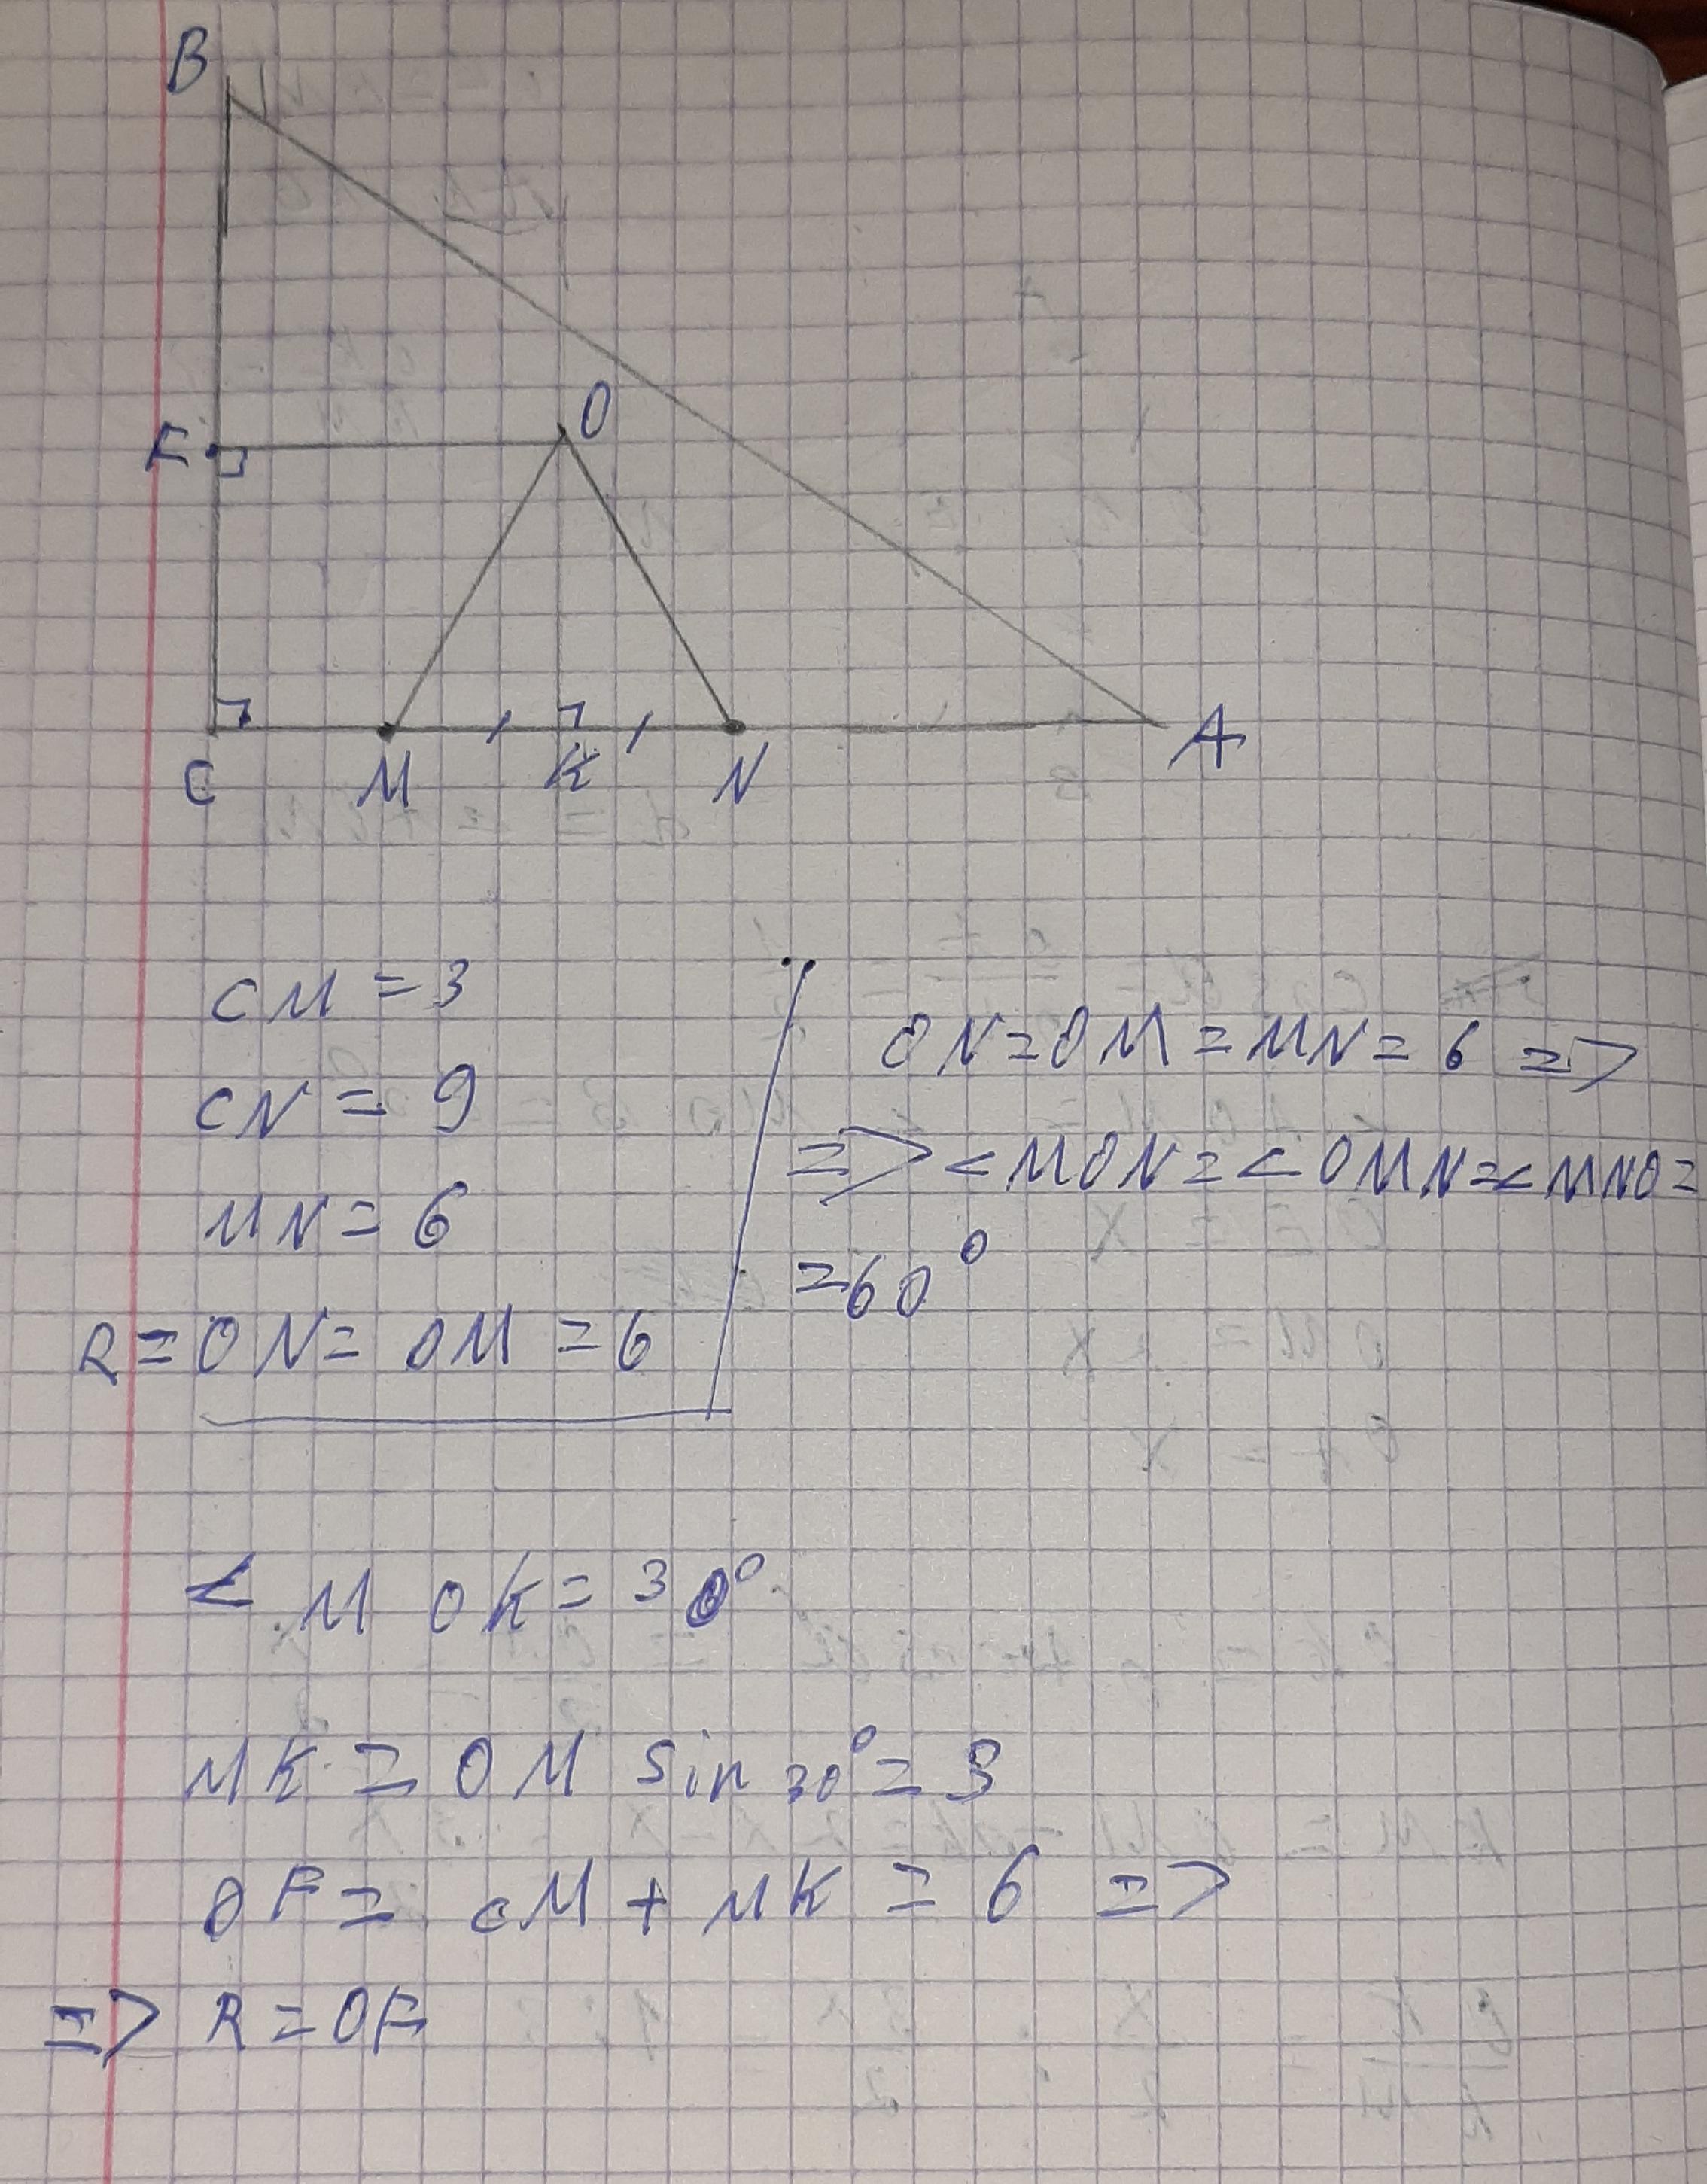 B
O
F
C M K N A
CM = 3
CN = 9
MN = 6
R = ON = OM = 6
ON = OM = MN = 6 =>
=> < MON = < OMN = < MNO =
= 60°
< MOK = 30°
MK = OM sin 30° = 3
OF = CM + MK = 6 =>
=> R = OF